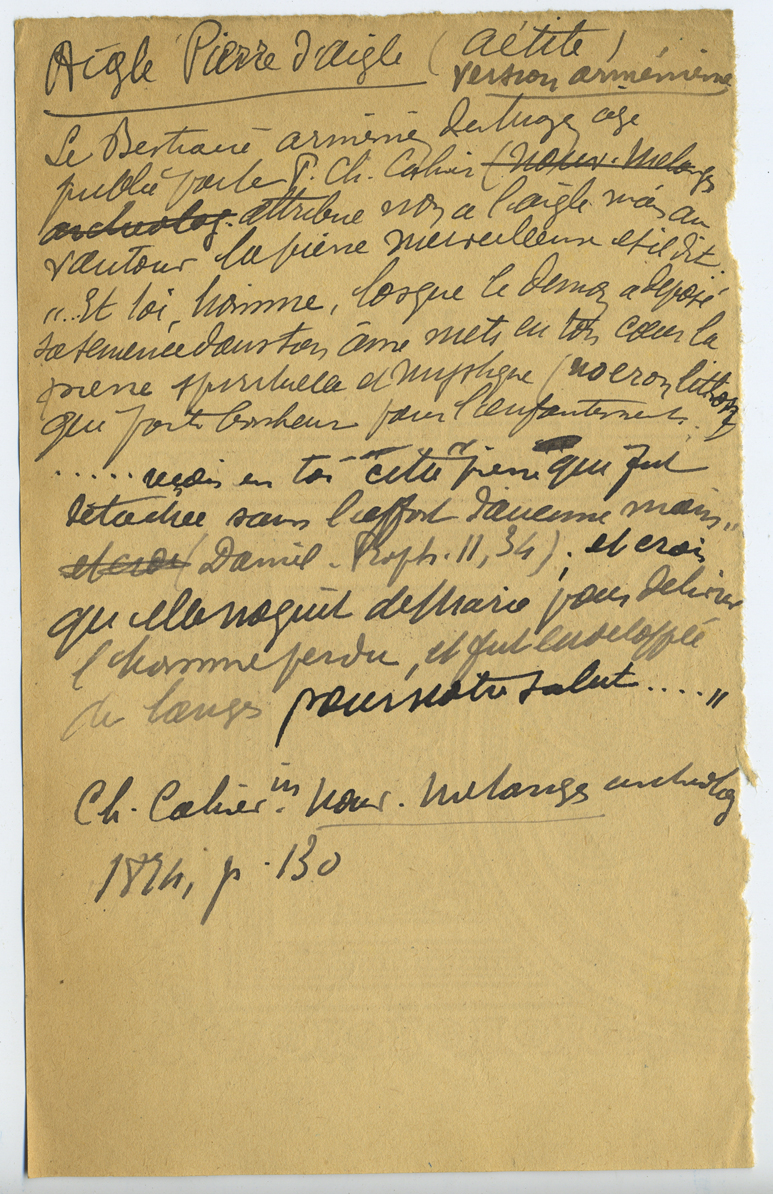 Aigle Pierre d'aigle (aétite)
version arménienne
Le Bestiaire arménien du moyen age
publié par le P. Ch. Cahier (nouv. Melanges
archeolog. attribue non a l'aigle mais au
vautour la pierre merveilleuse et il dit :
"... Et toi, homme, losque le demon a deposé
sa semence dans ton âme mets en ton cœur la
pierre spirituelle et mystique (noeron lithon)
qui porte bonheur pour l'enfantement.
...... reçois en toi cette pierre qui fut
détachée sans l'effort d'aucune main"
et crois (Daniel. Proph. II, 34) ; et crois
qu'elle naquit de Marie pour delivrer
l'homme perdu, et fut enveloppée
de langes pour notre salut ...."
Ch. Cahier in Nouv. Melanges archeolog
1874, p. 130